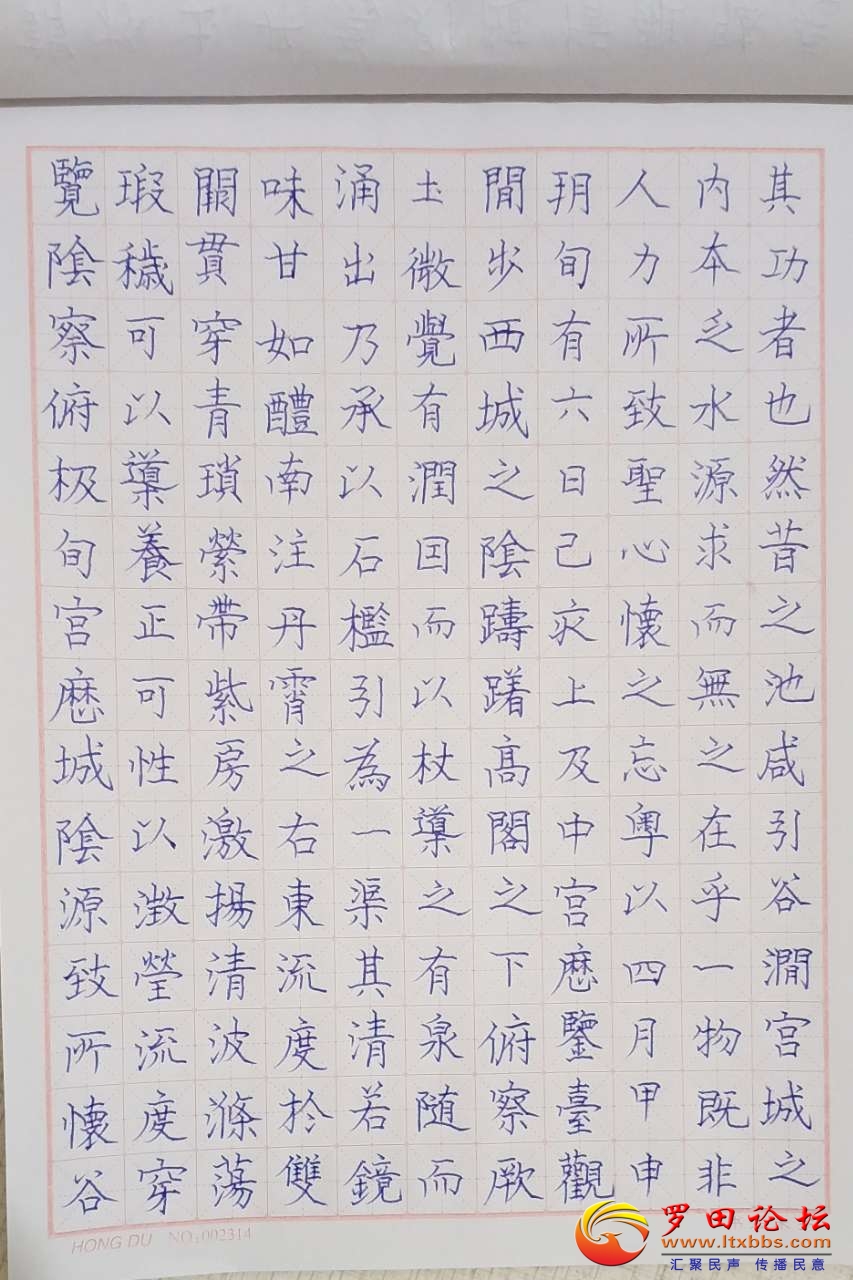 其功者也然昔之池咸引谷澗宮城之
内本乏水源求而無之在乎一物既非
人力所致聖心懷之忘粤以四月甲申
朔旬有六日己亥上及中宮歷鑒臺觀
閒步西城之陰躊躇高閣之下俯察厥
土微覺有潤因而以杖導之有泉随而
涌出乃承以石檻引為一渠其清若鏡
味甘如醴南注丹霄之右東流度於雙
闕貫穿青瑣縈帶紫房激揚清波滌蕩
瑕穢可以導養正可性以澂瑩流度穿
覽陰察俯极旬宮歷城陰源致所懷谷
HONG DU NO:002314
罗田论坛
www.ltxbbs.com
汇聚民声 传播民意